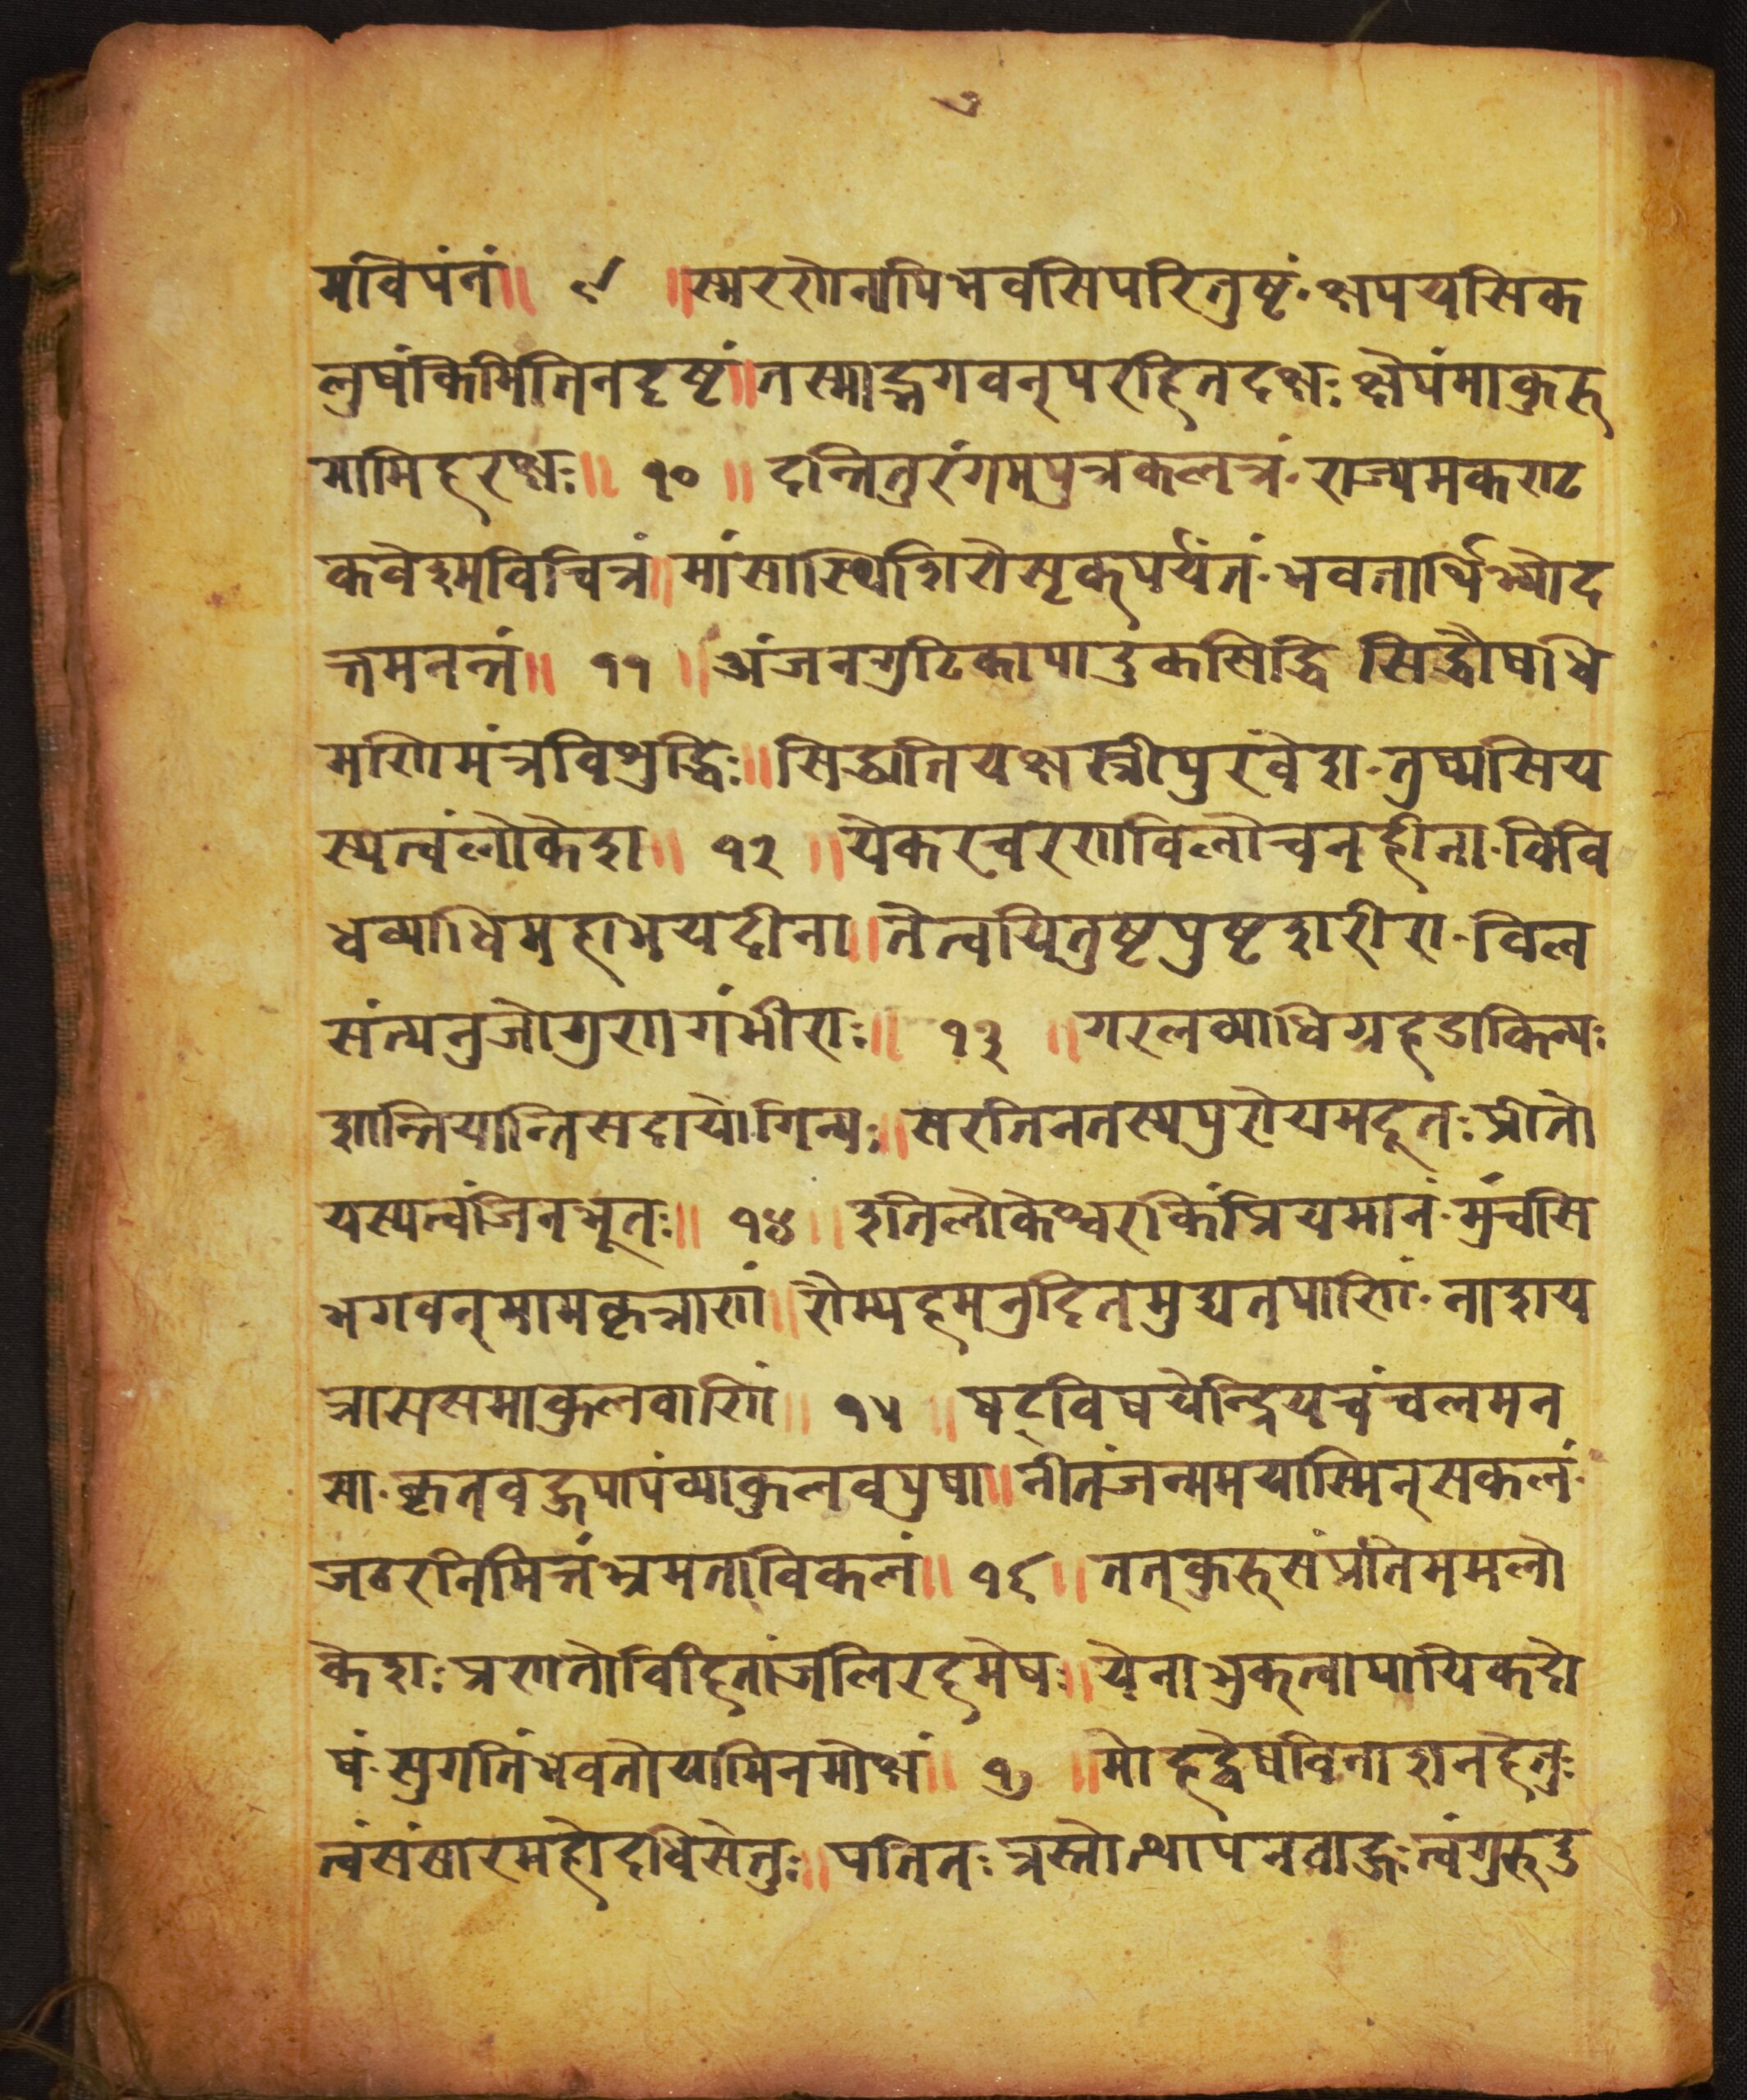 ७
मविपंनं॥ ९ ॥स्मरणेनापिभवसिपरितुष्टं·क्षपयसिक
लुषंकिमितिनदृष्टं॥तस्माद्भगवन्परहितदक्षः क्षेपंमाकुरु
मामिहरक्षः॥ १० ॥ दन्तितुरंगमपुत्रकलत्रं·राज्यमकराट
कवेश्मविचित्रं॥मांसास्थिशिरोसृक्पर्यंतं·भवतार्थिभ्योद
त्तमनन्तं॥ ११ ॥अंजनगुटिकापादुकसिद्धि सिद्धौषधि
मणिमंत्रविशुद्धिः॥सिद्ध्यतियक्षस्त्रीपुरवेश·तुष्यसिय
स्यत्वंलोकेश॥ १२ ॥येकरचरणविलोचनहीना·विवि
धव्याधिमहाभयदीना॥तेत्वयितुष्टपुष्टशरीरा·विल
संत्यनुजोगुणगंभीराः॥ १३ ॥गरलव्याधिग्रहडाकिन्यः
शान्तियान्तिसदायोगिन्यः॥सरतिनतस्यपुरोयमदूतः प्रीतो
यस्यत्वंजिनभूतः॥ १४ ॥इतिलोकेश्वरकिंम्रियमानं·मुंचसि
भगवन्मामकृत्राणं॥रौम्यहमनुदितमुद्यतपाणिं·नाशय
त्राससमाकुलवाणिं॥ १५ ॥ षट्विषयेन्द्रियचंचलमन
सा·कृतबहुपापंव्याकुलवपुषा॥नीतंजन्ममयास्मिन्सकलं·
जठरनिमित्तंभ्रमताविकलं॥ १६॥ तत्कुरुसंप्रतिममलो
केशः प्रणतोविहितांजलिरहमेषः॥येनाभुक्त्वापायिकदो
षं·सुगतिंभवतोयामिनमोक्षं॥ १७ ॥मोहद्वेषविनाशनहेतुः
त्वंसंसारमहोदधिसेतुः॥पतितः त्रस्तोत्थापनबाहुः त्वंगुरुदु